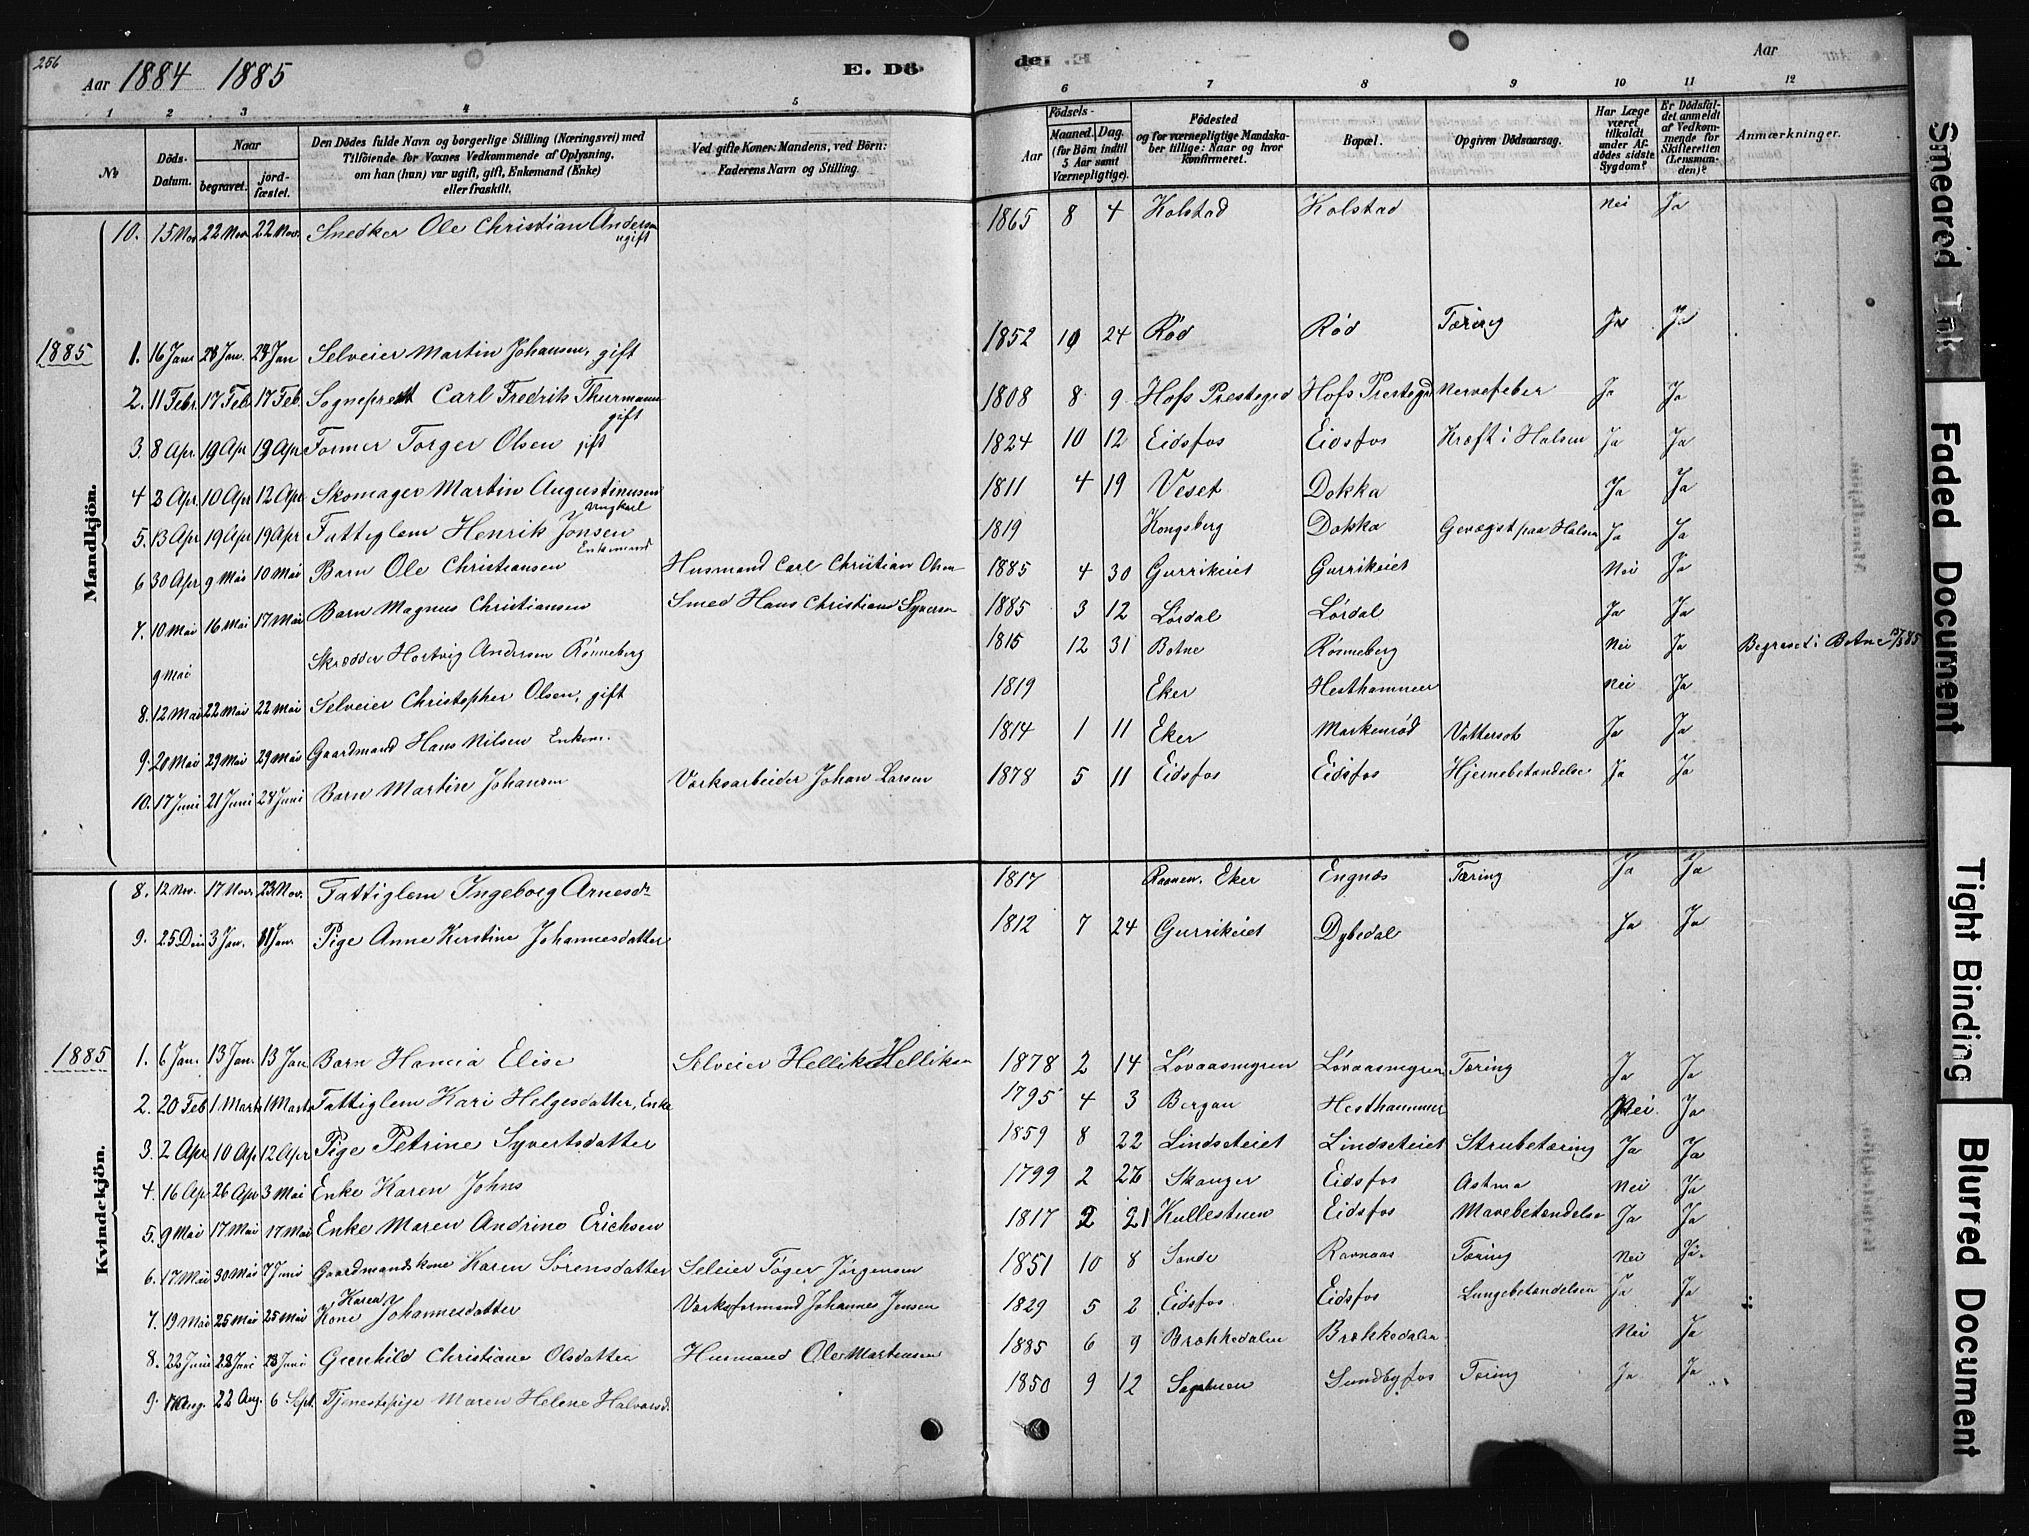 256
Aar 1884 1885
E. Dö
de
Aar
1 2 3 4 5 6 7 8 9 10 11 12
No
Döds-Datum.
Naar
begravet.
jordfæstet.
Den Dödes fulde Navn og borgerlige Stilling (Næringsvei) med
Tilföiende for Voxnes Vedkommende af Oplysning,
om han (hun) var ugift, gift, Enkemand (Enke)
eller fraskilt.
Ved gifte Koner: Mandens, ved Börn:
Faderens Navn og Stilling.
Födsels-
Aar
Maaned. Dag.
(for Börn indtil
5 Aar samt
Værnepligtige).
Födested
og for værnepligtige Mandskaber tillige: Naar og hvor
konfirmeret.
Bopæl.
Opgiven Dödsaarsag.
Har Læge
været
tilkaldt
under Afdödes sidste
Sygdom?
Er Dödsfaldet anmeldt
af Vedkommende for
Skifteretten
(Lensmanden)?
Anmærkninger.
Mandkjön.
10. 15 Nov 22 Nov 22 Nov. Snedker Ole Christian Andersen ugift 1865 8 4 Kolstad Kolstad Nei Ja
1885
1. 16 Jan 28 Jan. 28 Jan Selveier Martin Johansen, gift 1852 10 24 Rød Rød Tæring Ja Ja
2. 11 Febr. 17 Feb 17 Feb. Sogneprest Carl Fredrik Thurmann gift 1808 8 9 Hofs Presteged Hofs Presteged Nervefeber Ja Ja
3. 8 Apr. 19 Apr 19 Apr Former Torger Olsen gift 1824 10 12 Eidsfos Eidsfos Kræft i Halsen Ja Ja
4 3 Apr. 10 Apr 12 Apr Skomager Martin Augustinusen Ungkarl 1811 4 19 Veset Dokka Ja Ja
5. 13 Apr 19 Apr 19 Apr Fattiglem Henrik Jonsen Enkemand 1819 Kongsberg Dokka Gevægst paa Halsen Ja Ja
6 30 Apr. 9 Mai 10 Mai Barn Ole Christiansen Husmand Carl Christian Olsen 1885 4 30 Gurrikeiet Gurrikeiet Nei Ja
7. 10 Mai 16 Mai 17 Mai Barn Magnus Christiansen Smed Hans Christian Syversen 1885 3 12 Lørdal Lørdal Ja Ja
9 Mai Skrædder Hartvig Andersen Rønneberg 1815 12 31 Botne Rønneberg Nei Ja Begravet i Botne
8. 12 Mai 22 Mai 22 Mai Selveier Christopher Olsen, gift 1819 Eker Hesthammer Nei Ja
9. 20 Mai 29 Mai 29 Mai Gaardmand Hans Nilsen Enkem. 1814 1 11 Eker Markenrød Vattersot Ja Ja
10. 17 Juni 21 Juni 24 Juni Barn Martin Johansen Værksarbeider Johan Larsen 1878 5 11 Eidsfos Eidsfos Hjernebetændelse Ja Ja
Kvindekjön.
8. 12 Nov. 17 Nov. 23 Nov. Fattiglem Ingeborg Arnesdr 1817 Eker Engnæs Tæring Ja Ja
9. 25 Dec 3 Jan. 11 Jan. Pige Anne Kirstine Johannesdatter 1812 7 24 Gurrikeiet Dybedal Ja Ja
1885
1. 6 Jan. 13 Jan. 13 Jan. Barn Hanna Elise Selveier Helliksen 1878 2 14 Løvaasmyren Løvaasmyren Tæring Ja Ja
2. 20 Feb 1 Marts 1 Marts Fattiglem Kari Helgesdatter, Enke 1795 4 3 Bergan Hesthammer Nei. Ja
3. 2 Apr 10 Apr 12 Apr Pige Petrine Syvertsdatter 1859 8 22 Lindseteiet Lindseteiet Strubetæring Ja Ja
4. 16 Apr 26 Apr 3 Mai Enke Karen Johns 1799 2 26 Skanger Eidsfos Astma Nei Ja
5. 9 Mai 17 Mai 17 Mai Enke Maren Andrine Erichsen 1817 2 21 Kullestuen Eidsfos Mavebetændelse Ja Ja
6. 17 Mai 30 Mai 7 Juni Gaardmandskone Karen Sørensdatter Seleier Toger Jørgensen 1851 10 8 Sande Ravnaas Tæring Nei Ja
7. 19 Mai 25 Mai 25 Mai Kone Karen Johannesdatter Værksformand Johannes Jensen 1829 5 2 Eidsfos Eidsfos Lungebetændelsen Ja Ja
8. 22 Juni 28 Juni 28 Juni Gunhild Christiane Olsdatter Husmand Ole Martinsen 1885 6 9 Brækkedalen Brækkedalen Nei Ja
9. 14 Aug. 22 Aug. 6 Sept. Tjenestepige Maren Helene Halvorsd. 1850 9 12 Sagstuen Sundbyfos Tæring Ja Ja
Smeared Ink
Faded Document
Tight Binding
Blurred Document